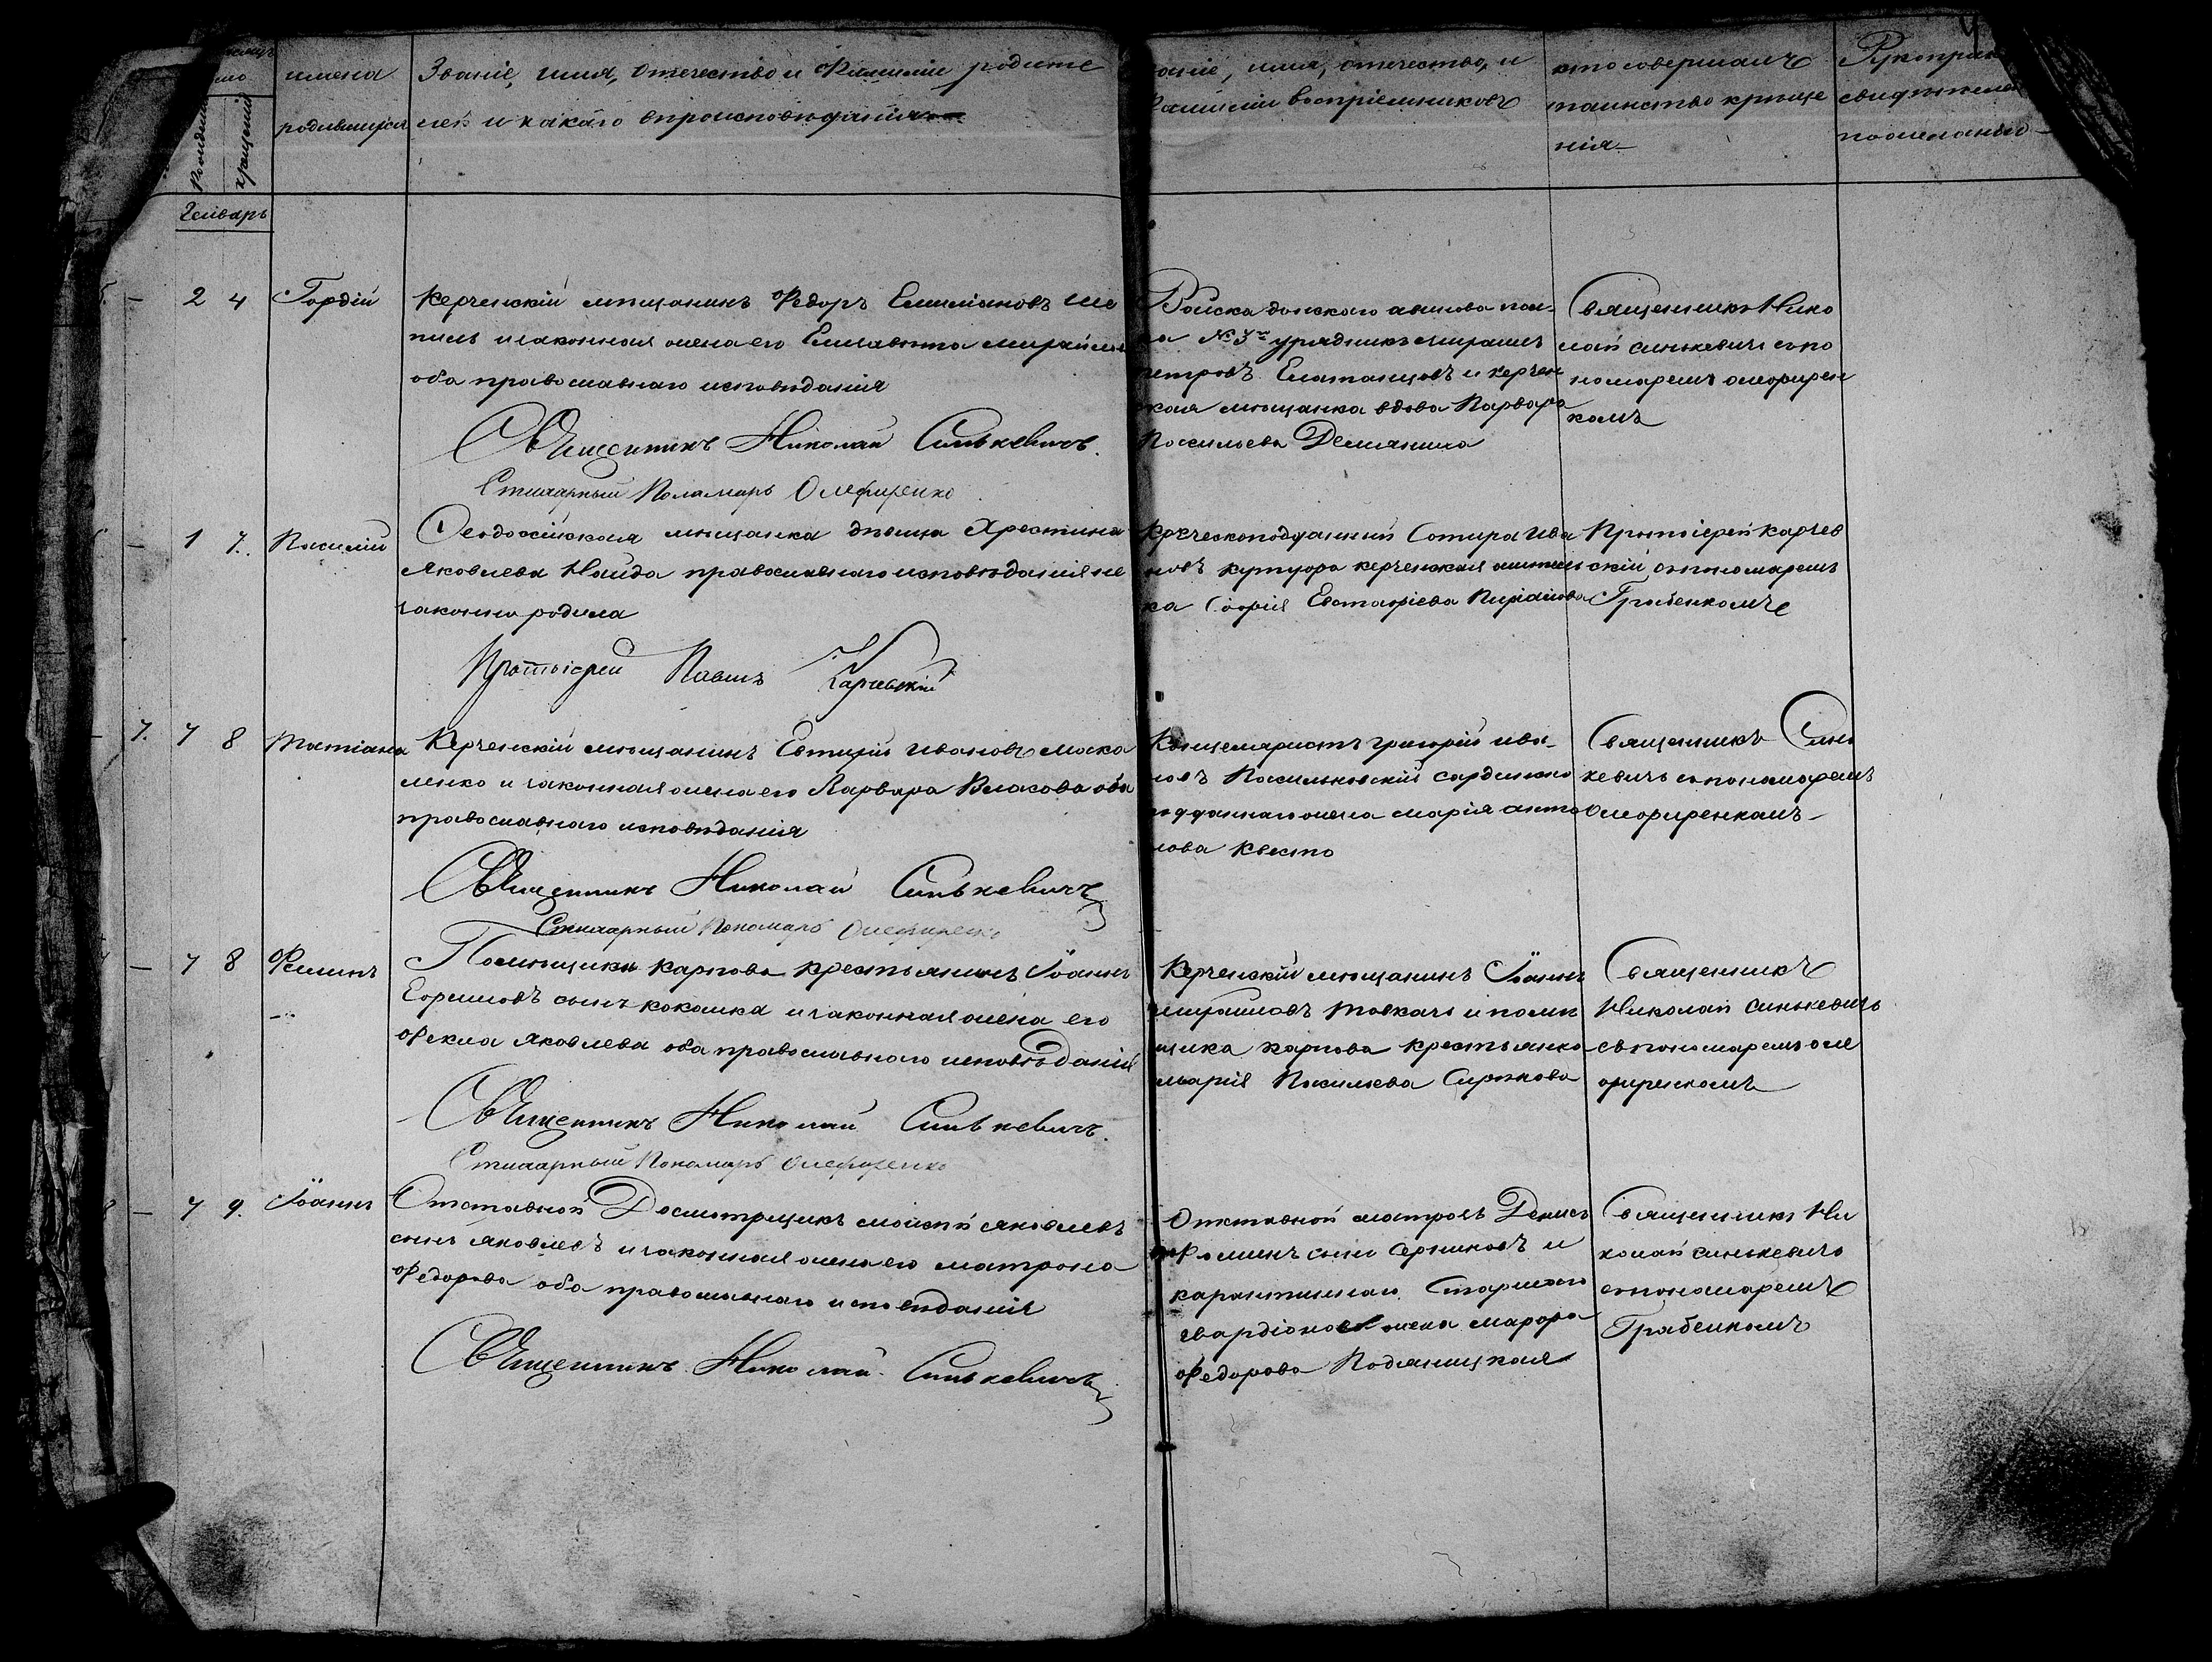 имена
родившихся
Званіе, имя, отечество и Фамиліи родите
лей и какаго вѣроисповѣданія
Рожденія
крещенія
Генварь
званіе, имя, отечество, и
Фамиліи воспріемниковъ
кто совершалъ
таинство креще
нія
Рукоприк
свидѣтелей
по желанію
2 4 Гордій
Керченскій мѣщанинъ Федоръ Емиліановъ Ше
и законная жена его Елисавета
оба православнаго исповѣданія
Священникъ Николай Синькевичъ.
Стихарный Поламарь Олефиренко
Войска донскаго пол-
ка № 3го урядникъ
петровъ и керчен
ская мѣщанка вдова Варвара
Васильева
Священникъ Нико
лай синькевичъ съ по
номаремъ олефирен
комъ
1 7. Василій
Феодосійская мѣщанка дѣвица Хрестина
Яковлева Найда православнаго исповѣданія не
законно родила
Протоіерей Павелъ Карчевскій
Греческоподданный Сотира Ива
новъ керченская
ка Софія Евстафіева
Протоіерей Карчев
скій съ пономаремъ
Грабенкомъ
7. 7 8 Татіана
Керченскій мѣщанинъ Евтихій Ивановъ моска
ленко и законная жена его Варвара Власова оба
православнаго исповѣданія
Священникъ Николай Синькевичъ
Стихарный Пономарь Олефиренко
Канцеляристъ григорій ива-
новъ Васильковскій сардинско
подданнаго жена марія анто
нова Квесто
Священникъ Синь
кевичъ съ пономаремъ
Олефиренкомъ
7 8 Филипъ
Помѣщика Карпова крестьянинъ Іоаннъ
Ефимовъ сынъ кокошка и законная жена его
Фекла Яковлева оба православнаго исповѣданія
Священникъ Николай Синькевичъ.
Стихарный Пономарь Олефиренко
Керченскій мѣщанинъ Іоаннъ
Товкачъ и помѣ
щика карпова крестьянка
марія Васильева
Священникъ
Николай синькевичъ
съ пономаремъ оле
фиренкомъ
7 9. Іоаннъ
Отставной Досмотрщикъ мойсей яковлевъ
сынъ яковлевъ и законная жена его матрона
Федорова оба православнаго исповѣданія
Священникъ Николай Синькевичъ
Отставной матросъ Денисъ
Фоминъ сынъ и
карантиннаго Старшаго
гвардіона жена марфа
Федорова
Священникъ Ни
колай синькевичъ
съ пономаремъ
Грабенкомъ